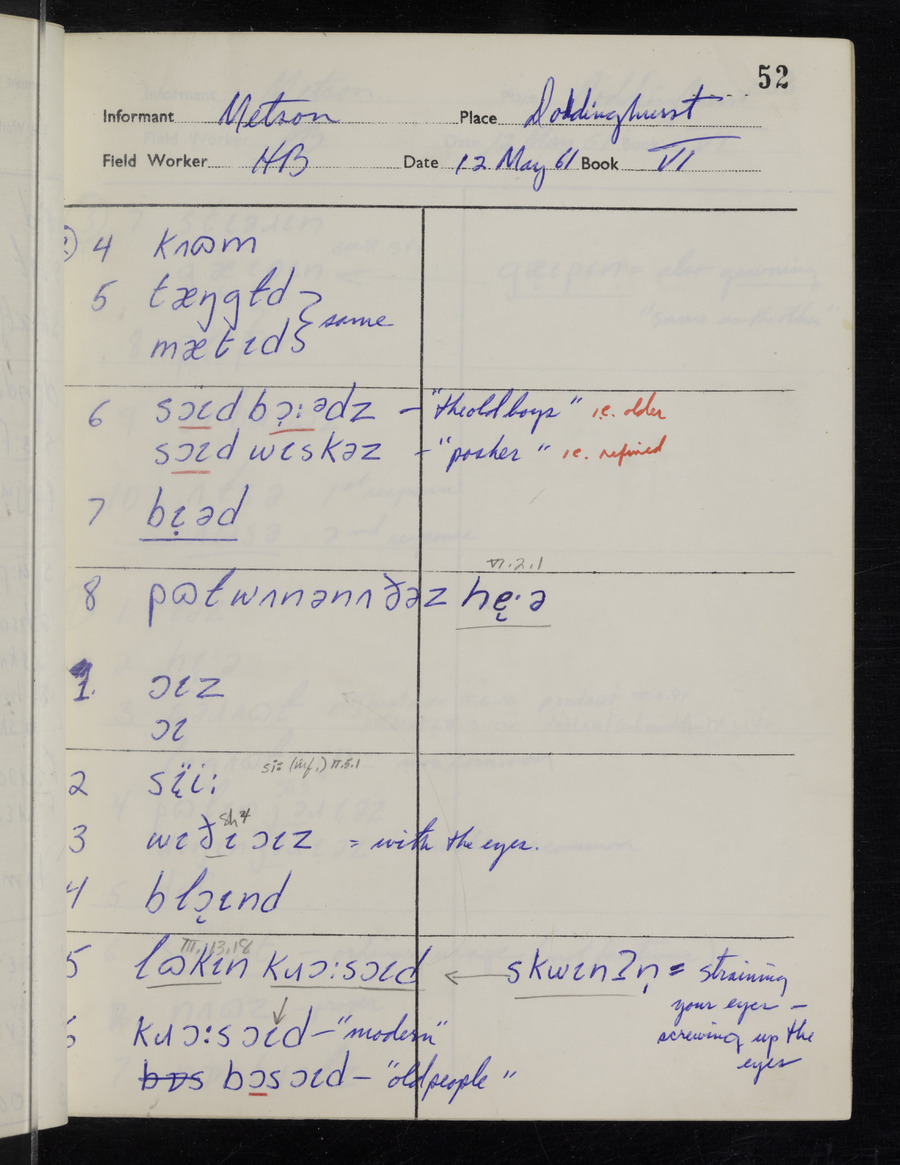 52
Informant Metson Place Doddinghurst
Field Worker HB Date 12 May 61 Book VI
4 kʌɷm
5 tæŋgɫd
mætɩd } same
6 sɔ̈ɩd bɔ̣:ədz – "the old boys" i.e. older
sɔɩd wɩskəz – "posher" i.e. refined
7 bɩ̣əd
VI.2.1
8 pɷɫwʌnənʌðəz hẹ·ə
1. ɔɩz
ɔɩ
2 sɩ̣̈i: si: (inf.) VI.3.1
3 wɩðɩ ɔɩz = with the eyes.
4 blɔ̣ɩnd
III.13.18
5 lɷkɩn kɹɔ:sɔɩd ← skwɩnʔṇ = straining
your eyes –
screwing up the
eyes
kɹɔ:sɔɩd – "modern"
bɒs bɔsɔɩd – "old people"